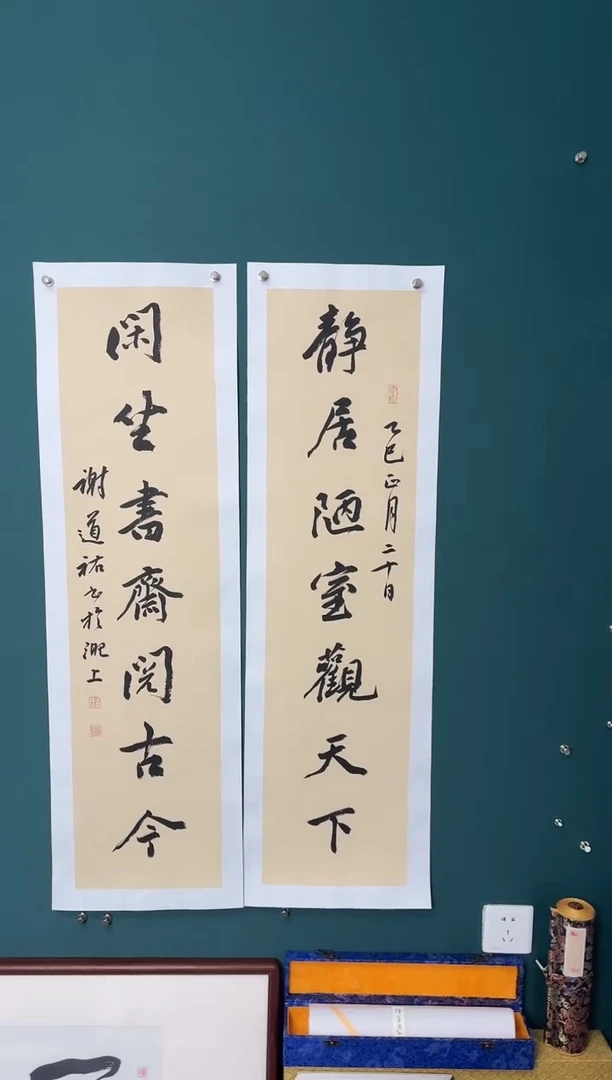 静居陋室觀天下
乙巳正月二十日
閑坐書齋閱古今
謝道祐书於淝上